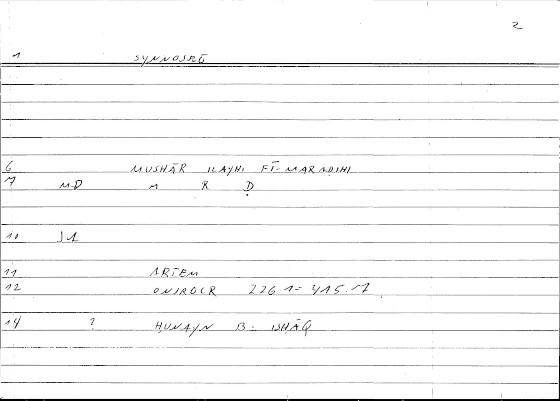 2
1 SYNNOSEŌ
6 MUSHĀR ILAYHI FĪ-MARAḌIHI
7 MD M R Ḍ
10 J1
11 ARTEM
12 ONIROCR 226.1 = 415.17
14 ? ḤUNAYN B. ISḤĀQ